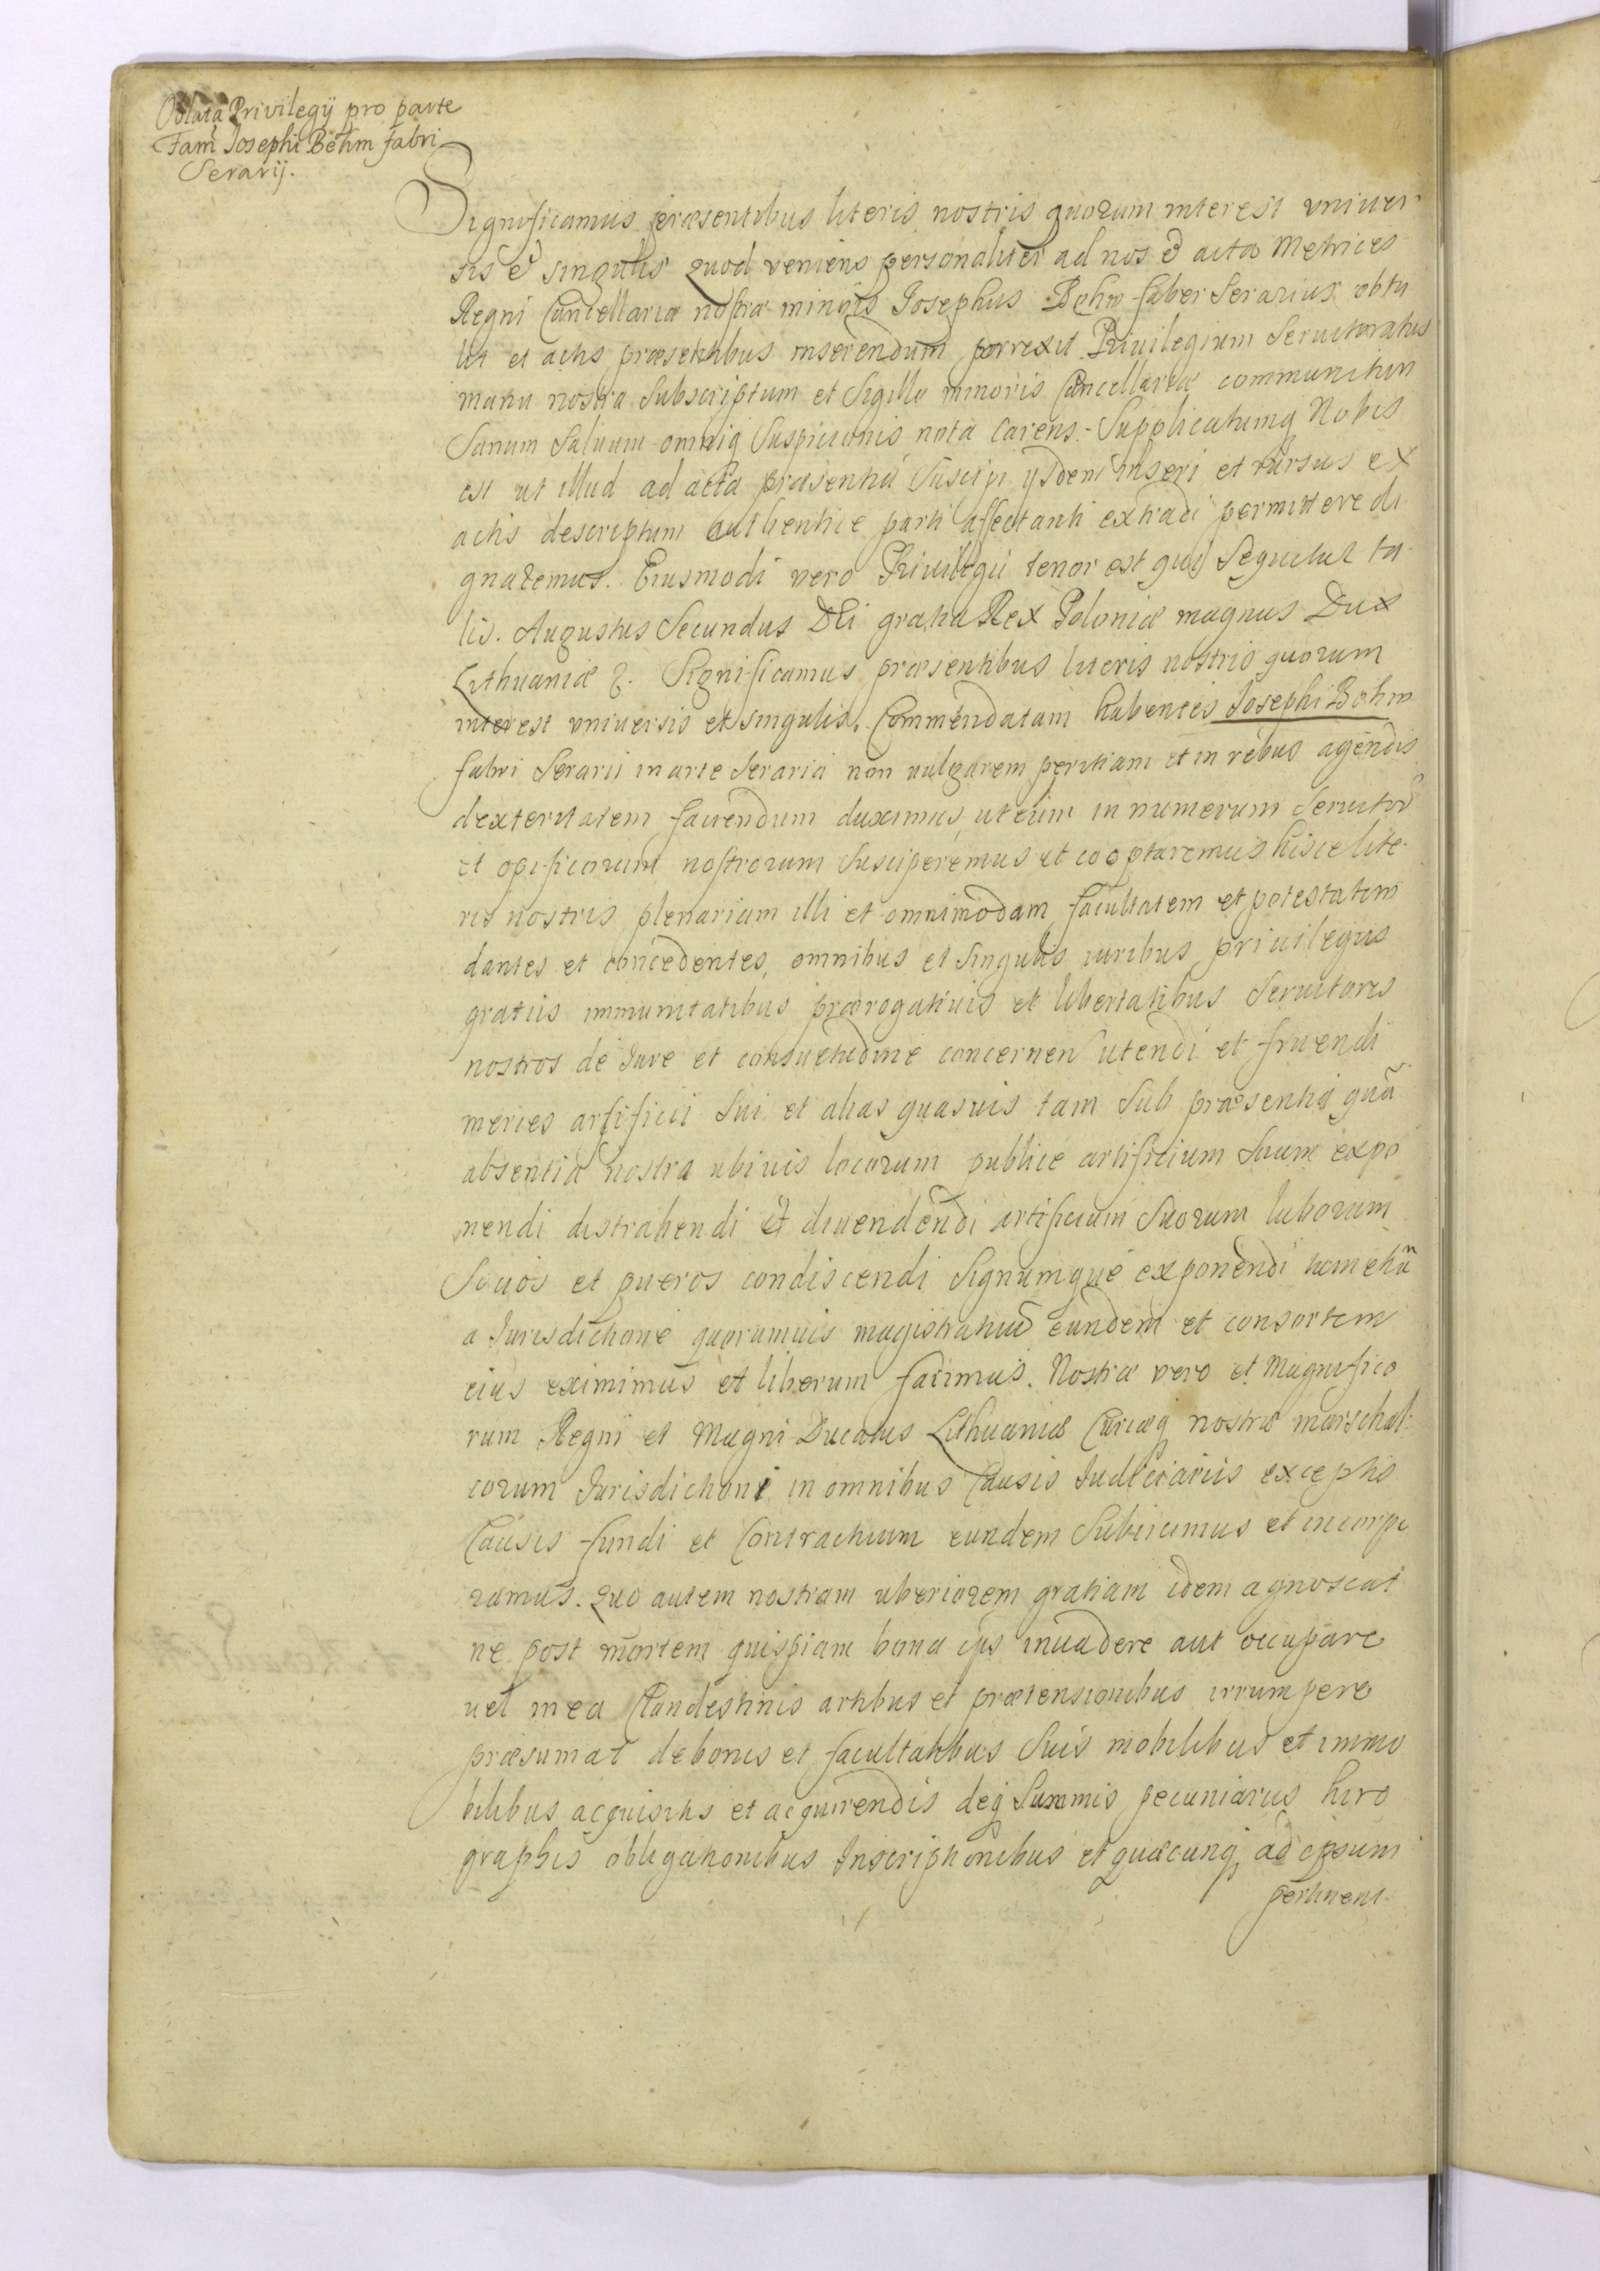 Oblata Privilegij pro parte
Fam. Josephi Böhm fabri
Serarij.
Significamus præsentibus literis nostris quorum interest vniuer
sis et singulis Quod veniens personaliter ad nos et acta Metrices
Regni Cancellariæ nostræ minoris Josephus Böhm faber Serarius obtu
lit et actis præsentibus inserendum porrexit Priuilegium Seruitoratus
manu nostra Subscriptum et Sigillo minoris Cancellariæ communitum
Sanum Saluum omniq Suspicionis nota Carens. Supplicatumq Nobis
est ut illud ad acta præsentia Suscipi ijsdem inseri et rursus ex
actis descriptum authentice parti affectanti extradi permittere di
gnaremus. Eiusmodi vero Priuilegii tenor est qui Sequitur ta
lis. Augustus Secundus DEi gratia Rex Poloniæ magnus Dux
Lithuaniæ &. Significamus præsentibus literis nostris quorum
interest vniuersis et singulis. Commendatam habentes Josephi Bohm
fabri Serarii in arte Seraria non uulgarem peritiam et in rebus agendis
dexteritatem faciendum duximus, ut eum in numerum Seruitor
et opificorum nostrorum Susciperemus et cooptaremus hisce lite
ris nostris plenariam illi et omnimodam facultatem et potestatem
dantes et concedentes, omnibus et Singulis iuribus priuilegiis
gratiis immunitatibus prærogatiuis et libertatibus Seruitores
nostros de Jure et consuetudine concernen utendi et fruendi
merces artificii Sui et alias quasuis tam Sub præsentia quã
absentia nostra ubiuis locorum publice artificium Suum expo
nendi distrahendi et diuendendi artificium Suorum laborum
Socios et pueros condiscendi Signumque exponendi
a Jurisdictione quorumuis magistratuũ eundem et consortem
eius eximimus et liberum facimus. Nostræ vero et Magnifico
rum Regni et Magni Ducatus Lithuaniæ Curiæq nostræ marschal:
corum Jurisdictioni in omnibus Causis Judiciariis exceptis
Causis fundi et Contractuum eundem Subiicimus et incorpo
ramus. Quo autem nostram uberiorem gratiam idem agnoscat
ne post mortem quispiam bona ejus inuadere aut occupare
uel in ea Clandestinis artibus et prætensionibus irrumpere
præsumat de bonis et facultatibus Suis mobilibus et immo
bilibus acquisitis et acquirendis deq Summis pecuniariis hiro
graphis obligationibus Inscriptionibus et quæcunq ad ipsum
pertinent.